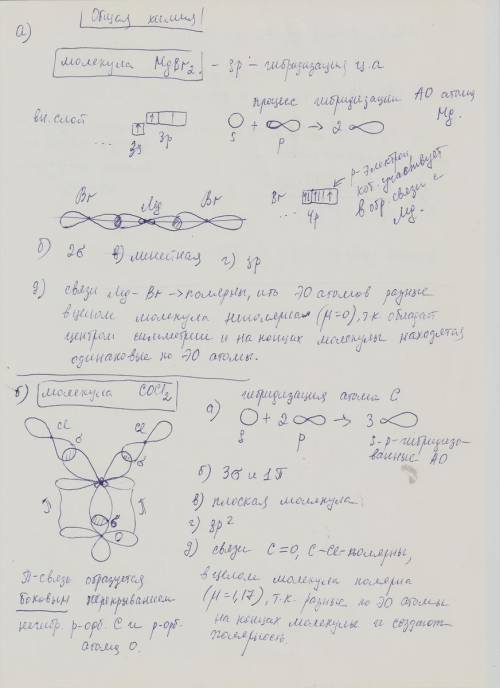 Общая химия
а)
молекула MgBr2. – sp – гибридизация ц.а
процесс гибридизации АО атома Mg.
вн. слой
... 3s 3p
s + p → 2
Br Mg Br
Br ... 4p
р-электрон, кот. участвует в обр. связи с Mg.
б) 2σ в) линейная г) sp
д) связи Mg–Br → полярны, ибо ЭО атомов разные
в целом молекула неполярна (μ=0), т.к обладает
центром симметрии и на концах молекулы находятся
одинаковые по ЭО атомы.
б) молекула COCl2
а) гибридизация атома С
s + 2 p → 3
s-p-гибридизованные АО
Cl Cl
σ σ
П П
σ
O
б) 3σ и 1П
в) плоская молекула
г) sp2
д) связи C=O, C–Cl-полярны,
в целом молекула полярна
(μ=1,17), т.к. разные по ЭО атомы
на концах молекулы и создают
полярность.
П-связь образуется
боковым перекрыванием
негибр. р-орб. С и р-орб.
атома О.